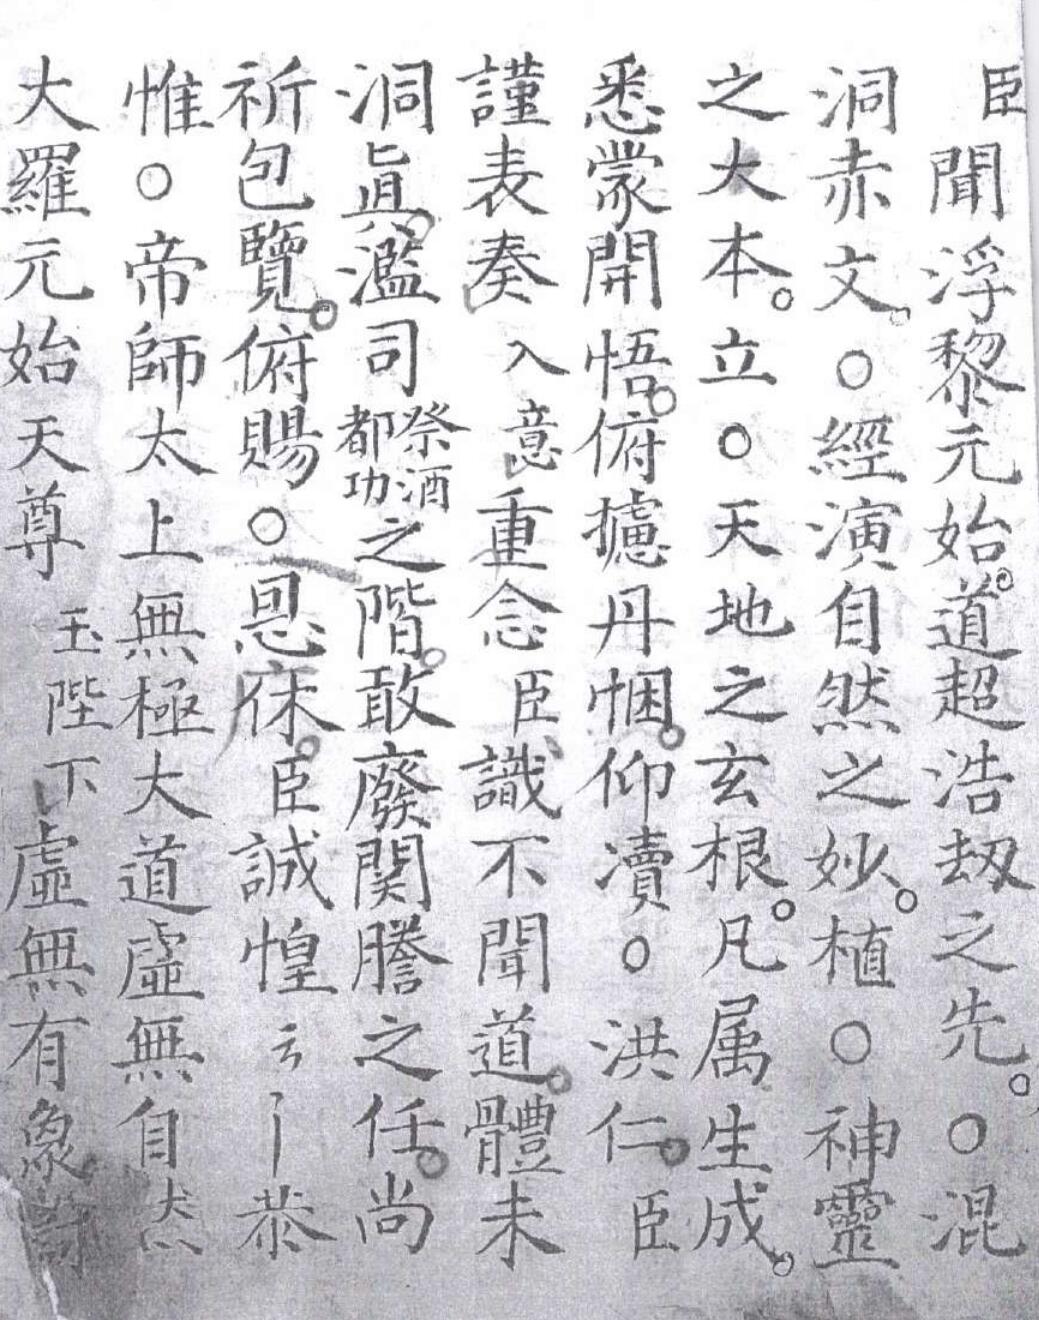 臣聞浮黎元始。道超浩刼之先。○混
洞赤文。○經演自然之妙。植○神靈
之大本。立○天地之玄根。凡属生成。
悉蒙開悟。俯攄丹悃。仰瀆○洪仁。臣
謹表奏入意重念臣識不聞道。體未
洞眞。濫司祭酒都功之階。敢廢関謄之任。尚
祈包覽。俯賜○恩庥。臣誠惶云丨恭
惟○帝師太上無極大道虛無自然
大羅元始天尊玉陛下虛無有象